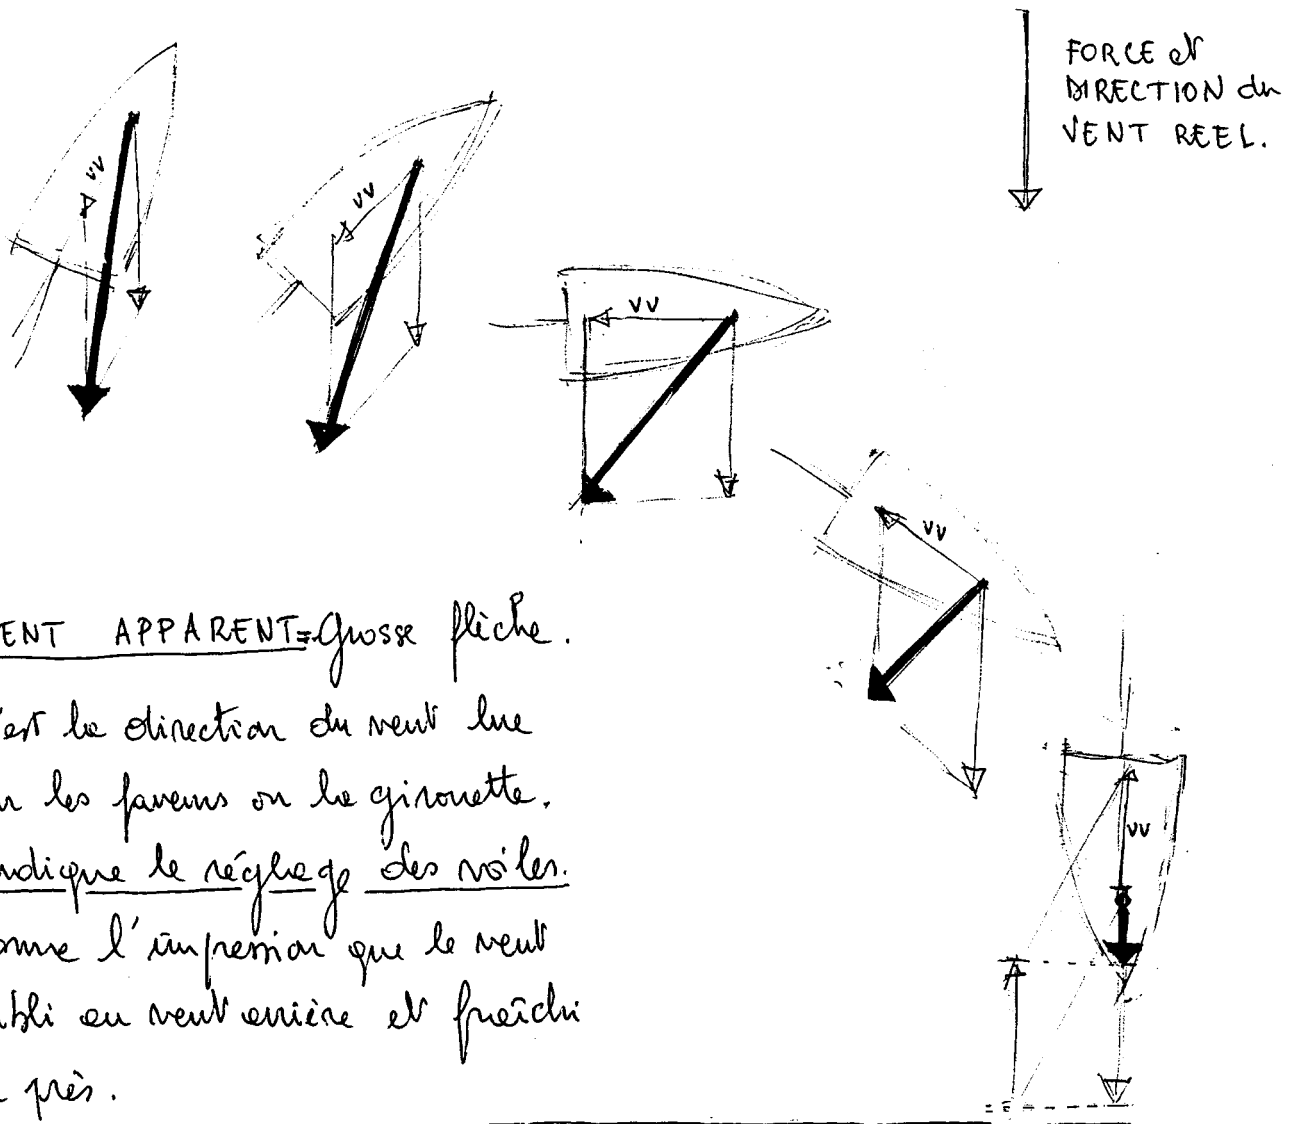 FORCE et
DIRECTION du
VENT REEL.
vv
vv
vv
vv
vv
ENT APPARENT=Grosse flèche.
'est la direction du vent lue
les faveurs ou la girouette.
ndique le réglage des voiles.
onne l'impression que le vent
bli au vent arrière et fraîchi
près.